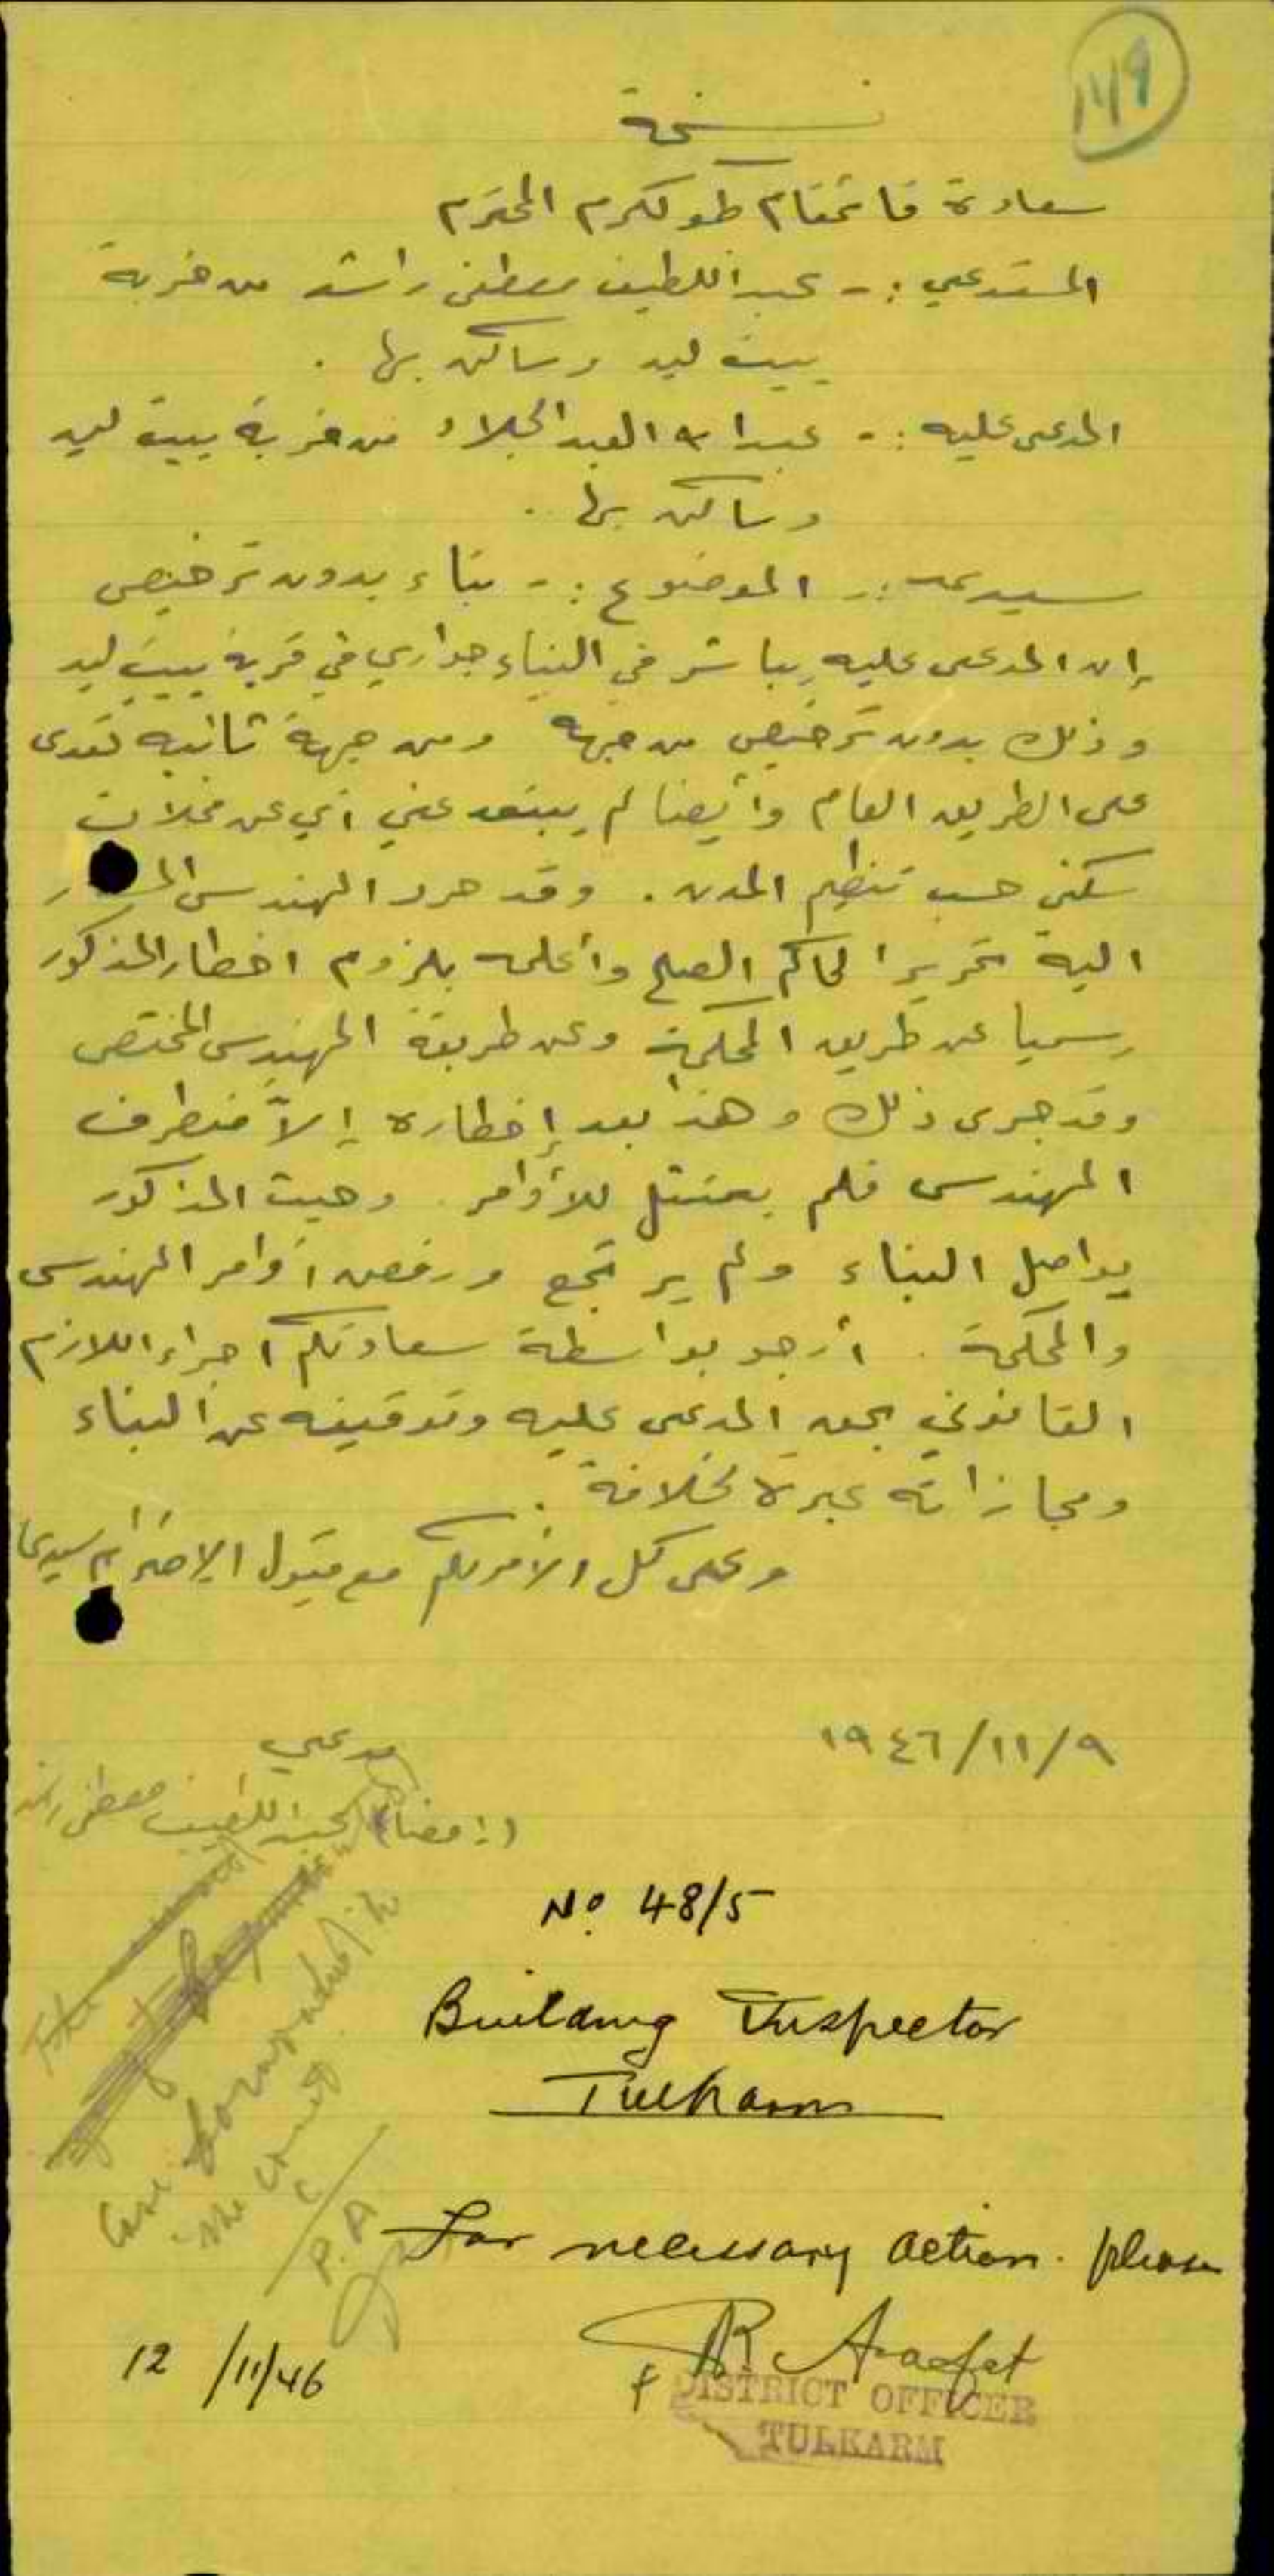 149
نسخة
سعادة قائمقام طولكرم المحترم
المستدعي :- عبد اللطيف مصطفى راشد من خربة
بيت ليد وساكن بها .
المدعى عليه :- عبدالله العبد الجلاد من خربة بيت ليد
وساكن بها .
سيدي :- الموضوع :- بناء بدون ترخيص
إن المدعى عليه يباشر في البناء جواري في قرية بيت ليد
وذلك بدون ترخيص من جهة ومن جهة ثانية تعدى
على الطريق العام وأيضا لم يبتعد عني أي عن محلات
سكني حسب تنظيم المدن . وقد حرر المهندس
اليه تحريرا لحاكم الصلح وأعلمه بلزوم اخطار المذكور
رسميا عن طريق المحكمة وعن طريقة المهندس المختص
وقد جرى ذلك وهذا بعد إخطاره
المهندس فلم يمتثل للأوامر . وحيث المذكور
يواصل البناء ولم يرتجع ورفض أوامر المهندس
والمحكمة . أرجو بواسطة سعادتكم اجراء اللازم
القانوني بحق المدعى عليه وتوقيفه عن البناء
ومجازاته عبرة لخلافه .
وعلى كل الأمر لكم مع قبول الإحترام سيدي
١٩٤٦/١١/٩
مدعي
(إمضاء) عبد اللطيف مصطفى راشد
No 48/5
Building Inspector
Tulkarm
Case forwarded
the court
P.A
For necessary action please
12/11/46
R. Araafet
f DISTRICT OFFICER
TULKARM